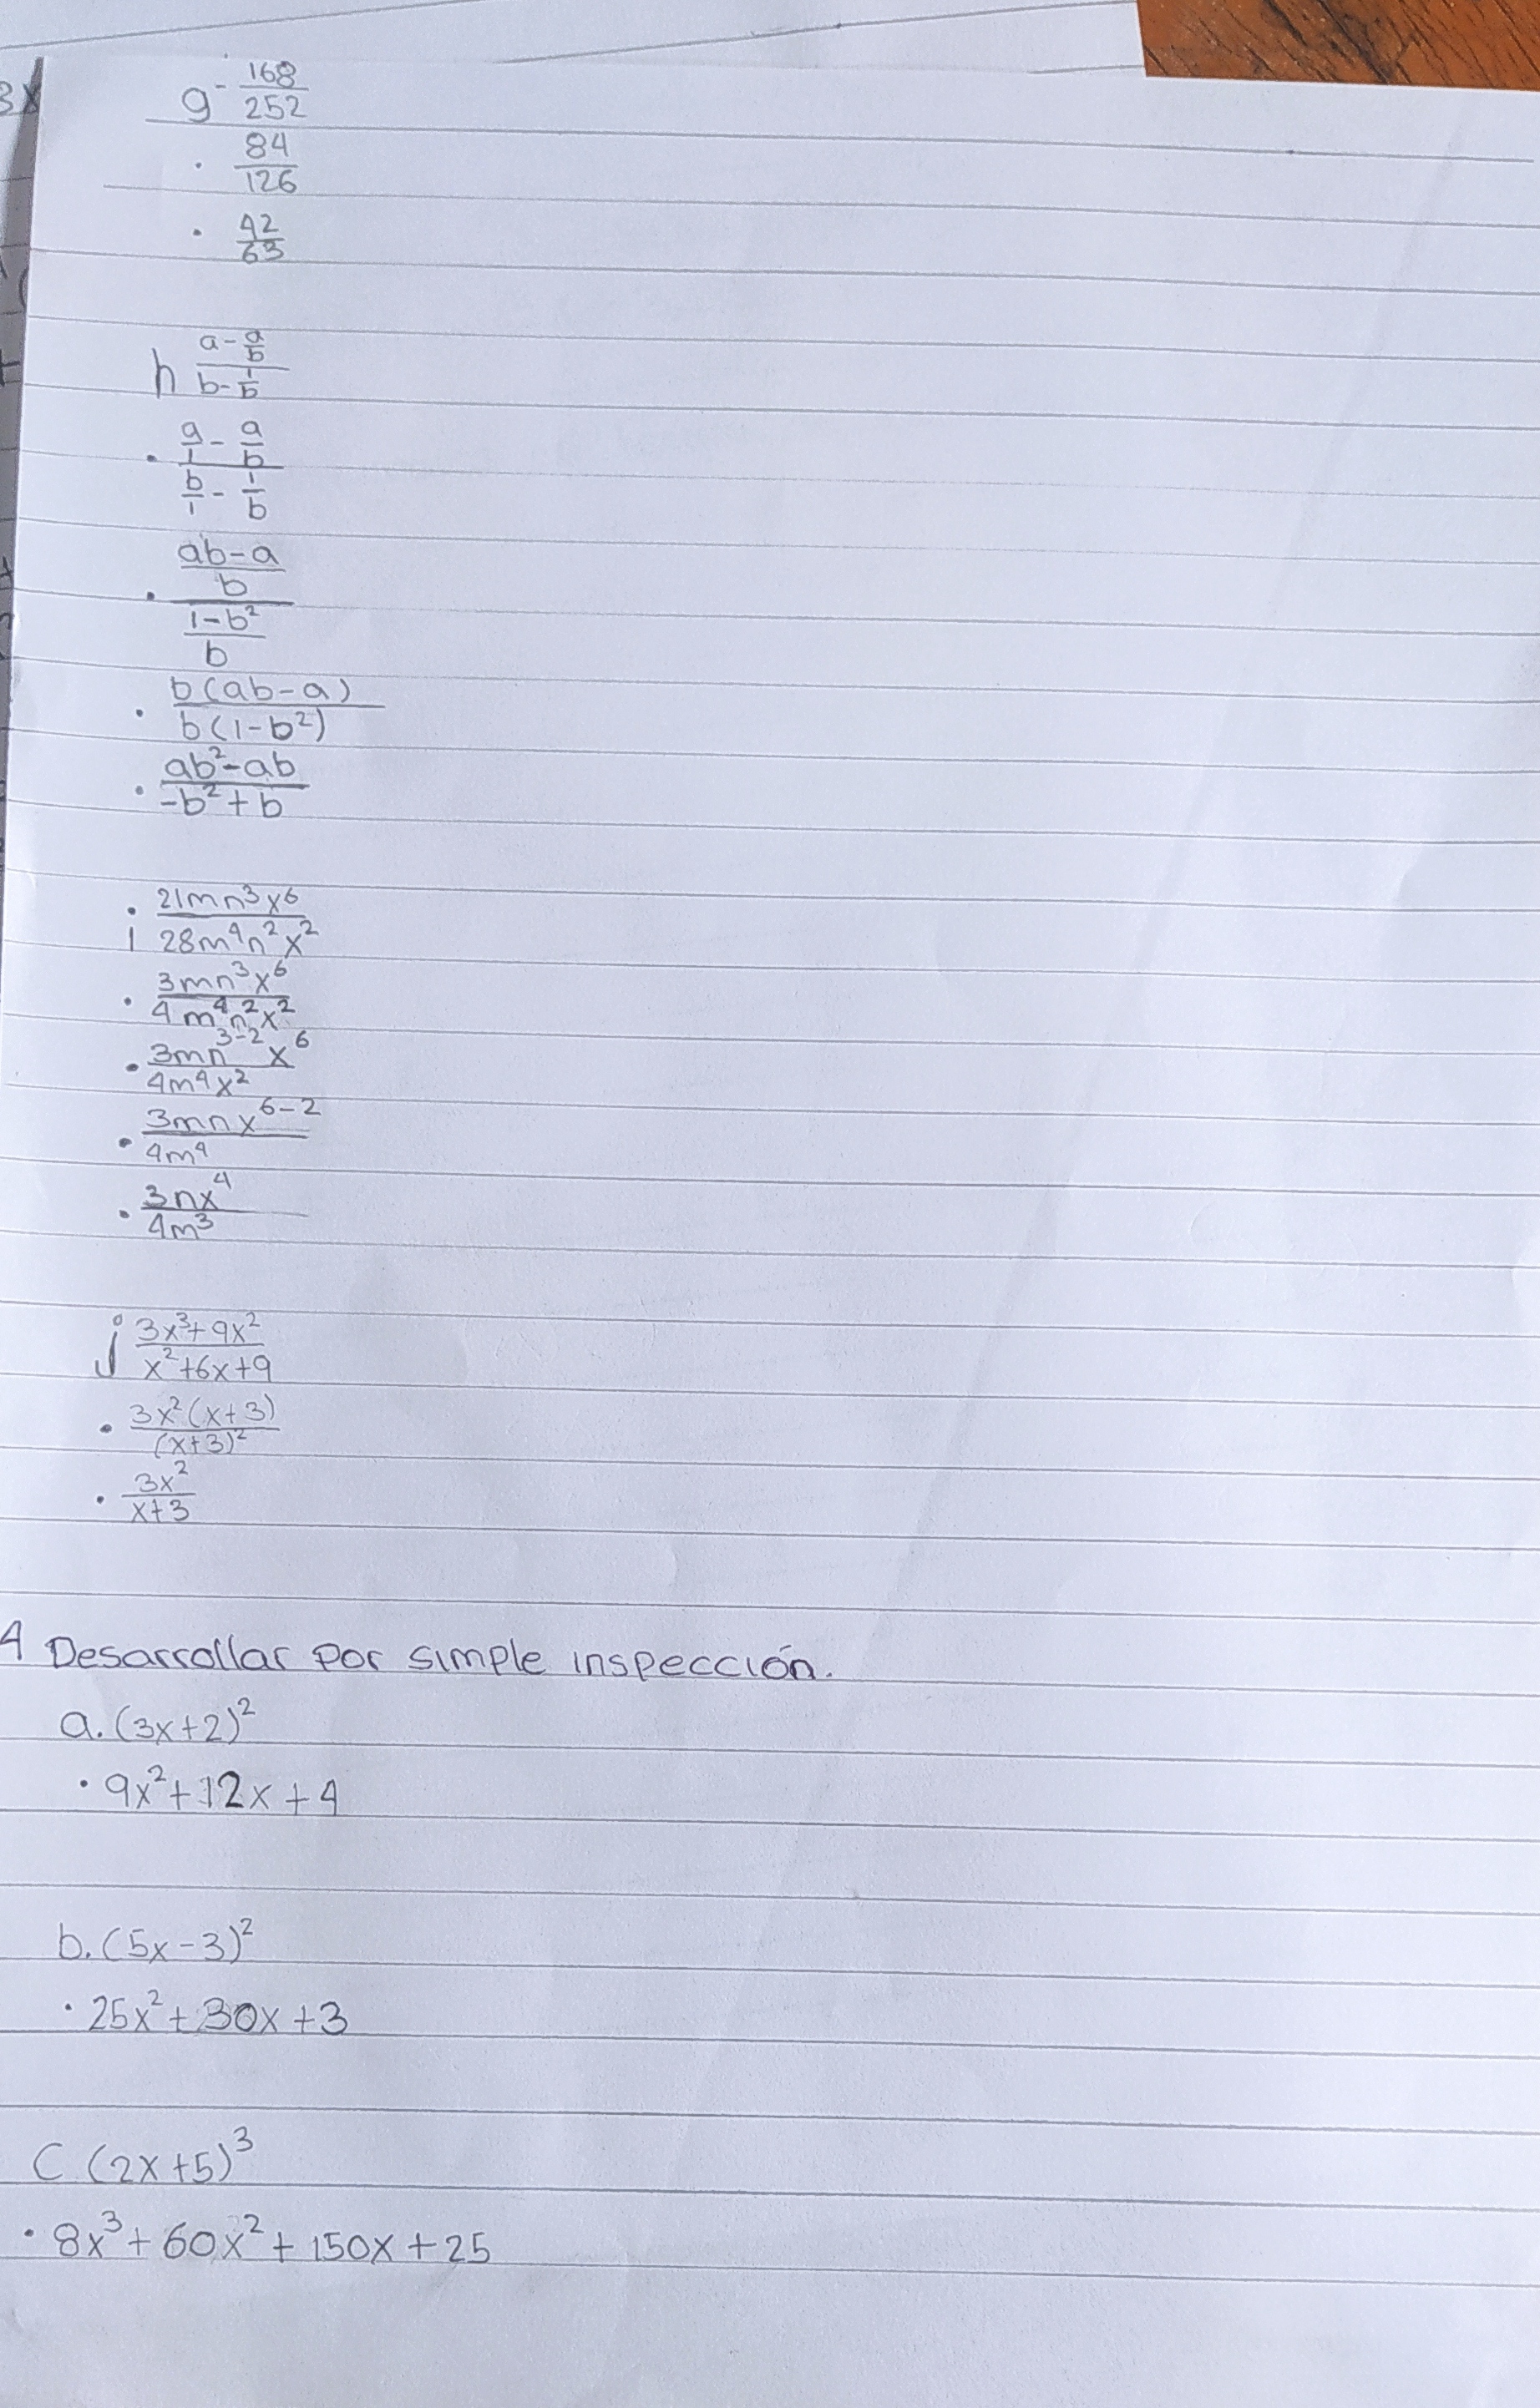 3x
g - 168/252
· 84/126
· 42/63
h (a - a/b)/(b - 1/b)
· (a/1 - a/b)/(b/1 - 1/b)
· ((ab-a)/b)/((1-b²)/b)
· b(ab-a)/b(1-b²)
· (ab²-ab)/(-b²+b)
i 21mn³x⁶/28m⁴n²x²
· 3mn³x⁶/4m⁴n²x²
· 3mn³⁻²x⁶/4m⁴x²
· 3mnx⁶⁻²/4m⁴
· 3nx⁴/4m³
j (3x³+9x²)/(x²+6x+9)
· 3x²(x+3)/(x+3)²
· 3x²/(x+3)
4 Desarrollar por simple inspección.
a. (3x+2)²
· 9x²+12x+4
b. (5x-3)²
· 25x²+30x+3
C (2x+5)³
· 8x³+60x²+150x+25